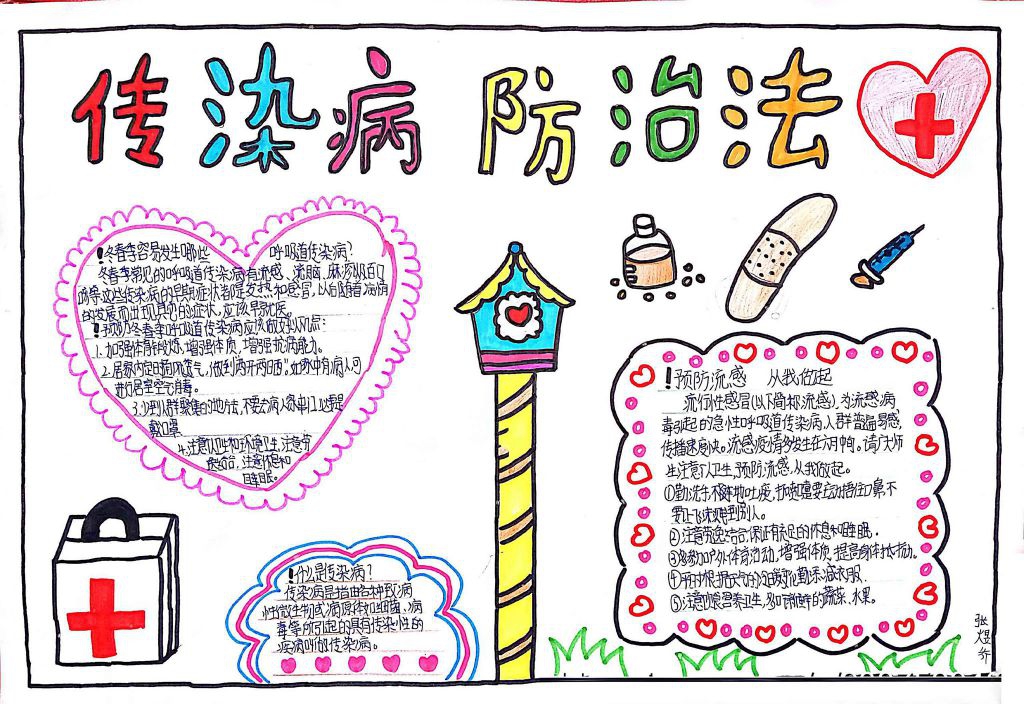 传染病防治法
！冬春季容易发生哪些 呼吸道传染病？
冬春季常见的呼吸道传染病有流感、流脑、麻疹以及百日
咳等，这些传染病的早期症状都是发热和感冒，以后随着病情
的发展而出现其它的症状，应该早就医。
！预防冬春季呼吸道传染病应该做好以下几点：
1.加强体育锻炼，增强体质，增强抗病能力。
2.居家内定时通风换气，做到"两开两晒"，如家中有病人可
进行居室空气消毒。
3.少到人群聚集的地方去，不要去病人家串门，必要是
戴口罩
4.注意个人卫生和环境卫生，注意劳
逸结合，注意休息和
睡眠。
！什么是传染病？
传染病是指由各种致病
性微生物或病原体如细菌、病
毒等所引起的具有传染性的
疾病叫做传染病。
！预防流感 从我做起
流行性感冒(以下简称流感)，为流感病
毒引起的急性呼吸道传染病，人群普遍易感，
传播速度快。流感疫情多发生在
生注意个人卫生，预防流感，从我做起。
①勤洗手，不随地吐痰，打喷嚏要主动捂住口鼻，不
要让飞沫溅到别人。
②注意劳逸结合，保证有充足的休息和睡眠。
③多参加户外体育活动，增强体质，提高身体抵抗力。
④平时根据天气的冷暖变化勤添减衣服。
⑤注意饮食营养卫生，多如新鲜的蔬菜、水果。
张
煜
乔